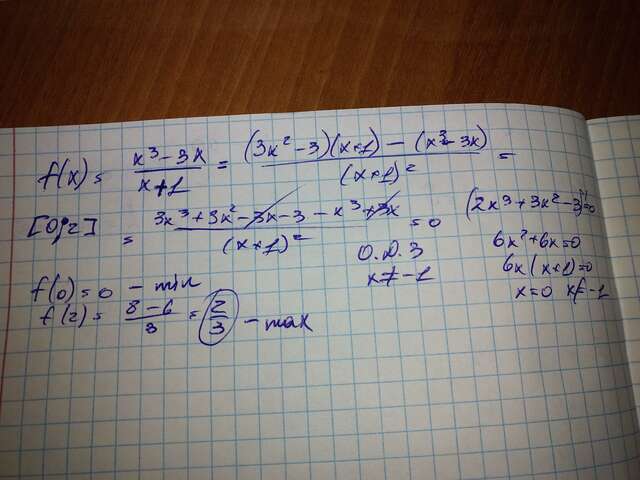 f(x) = (x³ - 3x)/(x+1) = ((3x² - 3)(x+1) - (x³ - 3x))/(x+1)² =
[0; 2] = (3x³ + 3x² - 3x - 3 - x³ + 3x)/(x+1)² = 0 (2x³ + 3x² - 3)' = 0
О.Д.З 6x² + 6x = 0
x ≠ -1 6x(x+1) = 0
x = 0 x ≠ -1
f(0) = 0 - min
f(2) = (8-6)/3 = 2/3 - max